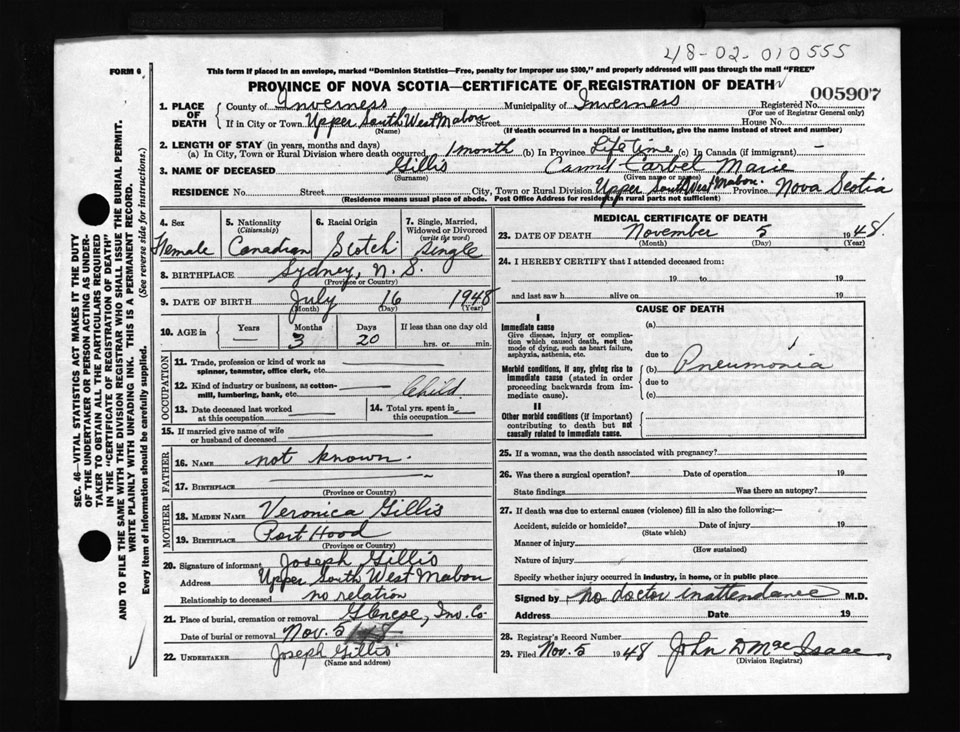 48-02-010555
FORM 6
This form if placed in an envelope, marked "Dominion Statistics—Free, penalty for improper use $300," and properly addressed will pass through the mail "FREE"
PROVINCE OF NOVA SCOTIA—CERTIFICATE OF REGISTRATION OF DEATH
005907
1. PLACE OF DEATH County of Inverness Municipality of Inverness Registered No.
(For use of Registrar General only)
If in City or Town Upper South West Mabou Street House No.
(Name) (If death occurred in a hospital or institution, give the name instead of street and number)
2. LENGTH OF STAY (in years, months and days)
(a) In City, Town or Rural Division where death occurred 1 month (b) In Province Life time (c) In Canada (if immigrant) —
3. NAME OF DECEASED Gillis Carmel Marie
(Surname) (Given name or names)
RESIDENCE No. Street City, Town or Rural Division Upper South West Mabou Province Nova Scotia
(Residence means usual place of abode. Post Office Address for residents in rural parts not sufficient)
4. Sex 5. Nationality 6. Racial Origin 7. Single, Married, Widowed or Divorced
(Citizenship) (write the word)
Female Canadian Scotch Single
8. BIRTHPLACE Sydney, N. S.
(Province or Country)
9. DATE OF BIRTH July 16 1948
(Month) (Day) (Year)
10. AGE in Years Months Days If less than one day old
— 3 20 hrs. or min.
OCCUPATION
11. Trade, profession or kind of work as spinner, teamster, office clerk, etc.
12. Kind of industry or business, as cotton-mill, lumbering, bank, etc. Child
13. Date deceased last worked at this occupation
14. Total yrs. spent in this occupation
15. If married give name of wife or husband of deceased
FATHER
16. NAME not known.
17. BIRTHPLACE
(Province or Country)
MOTHER
18. MAIDEN NAME Veronica Gillis
19. BIRTHPLACE Port Hood
(Province or Country)
20. Signature of informant Joseph Gillis
Address Upper South West Mabou
Relationship to deceased no relation
21. Place of burial, cremation or removal Glencoe, Inv. Co.
Date of burial or removal Nov. 5 1948
22. UNDERTAKER Joseph Gillis
(Name and address)
MEDICAL CERTIFICATE OF DEATH
23. DATE OF DEATH November 5 1948
(Month) (Day) (Year)
24. I HEREBY CERTIFY that I attended deceased from:
19 to 19
and last saw h alive on 19
CAUSE OF DEATH
I
Immediate cause (a)
Give disease, injury or complication which caused death, not the mode of dying, such as heart failure, asphyxia, asthenia, etc.
due to
Morbid conditions, if any, giving rise to immediate cause (stated in order proceeding backwards from immediate cause).
(b) Pneumonia
due to
(c)
II
Other morbid conditions (if important) contributing to death but not causally related to immediate cause.
25. If a woman, was the death associated with pregnancy?
26. Was there a surgical operation? Date of operation 19
State findings Was there an autopsy?
27. If death was due to external causes (violence) fill in also the following:—
Accident, suicide or homicide? Date of injury 19
(State which)
Manner of injury
(How sustained)
Nature of injury
Specify whether injury occurred in industry, in home, or in public place
Signed by no doctor in attendance M.D.
Address Date 19
28. Registrar's Record Number
29. Filed Nov. 5 1948 John D Mac Isaac
(Division Registrar)
SEC. 46—VITAL STATISTICS ACT MAKES IT THE DUTY
OF THE UNDERTAKER OR PERSON ACTING AS UNDER-
TAKER TO OBTAIN ALL THE PARTICULARS REQUIRED
IN THE "CERTIFICATE OF REGISTRATION OF DEATH"
AND TO FILE THE SAME WITH THE DIVISION REGISTRAR WHO SHALL ISSUE THE BURIAL PERMIT.
WRITE PLAINLY WITH UNFADING INK. THIS IS A PERMANENT RECORD.
Every item of information should be carefully supplied. (See reverse side for instructions.)